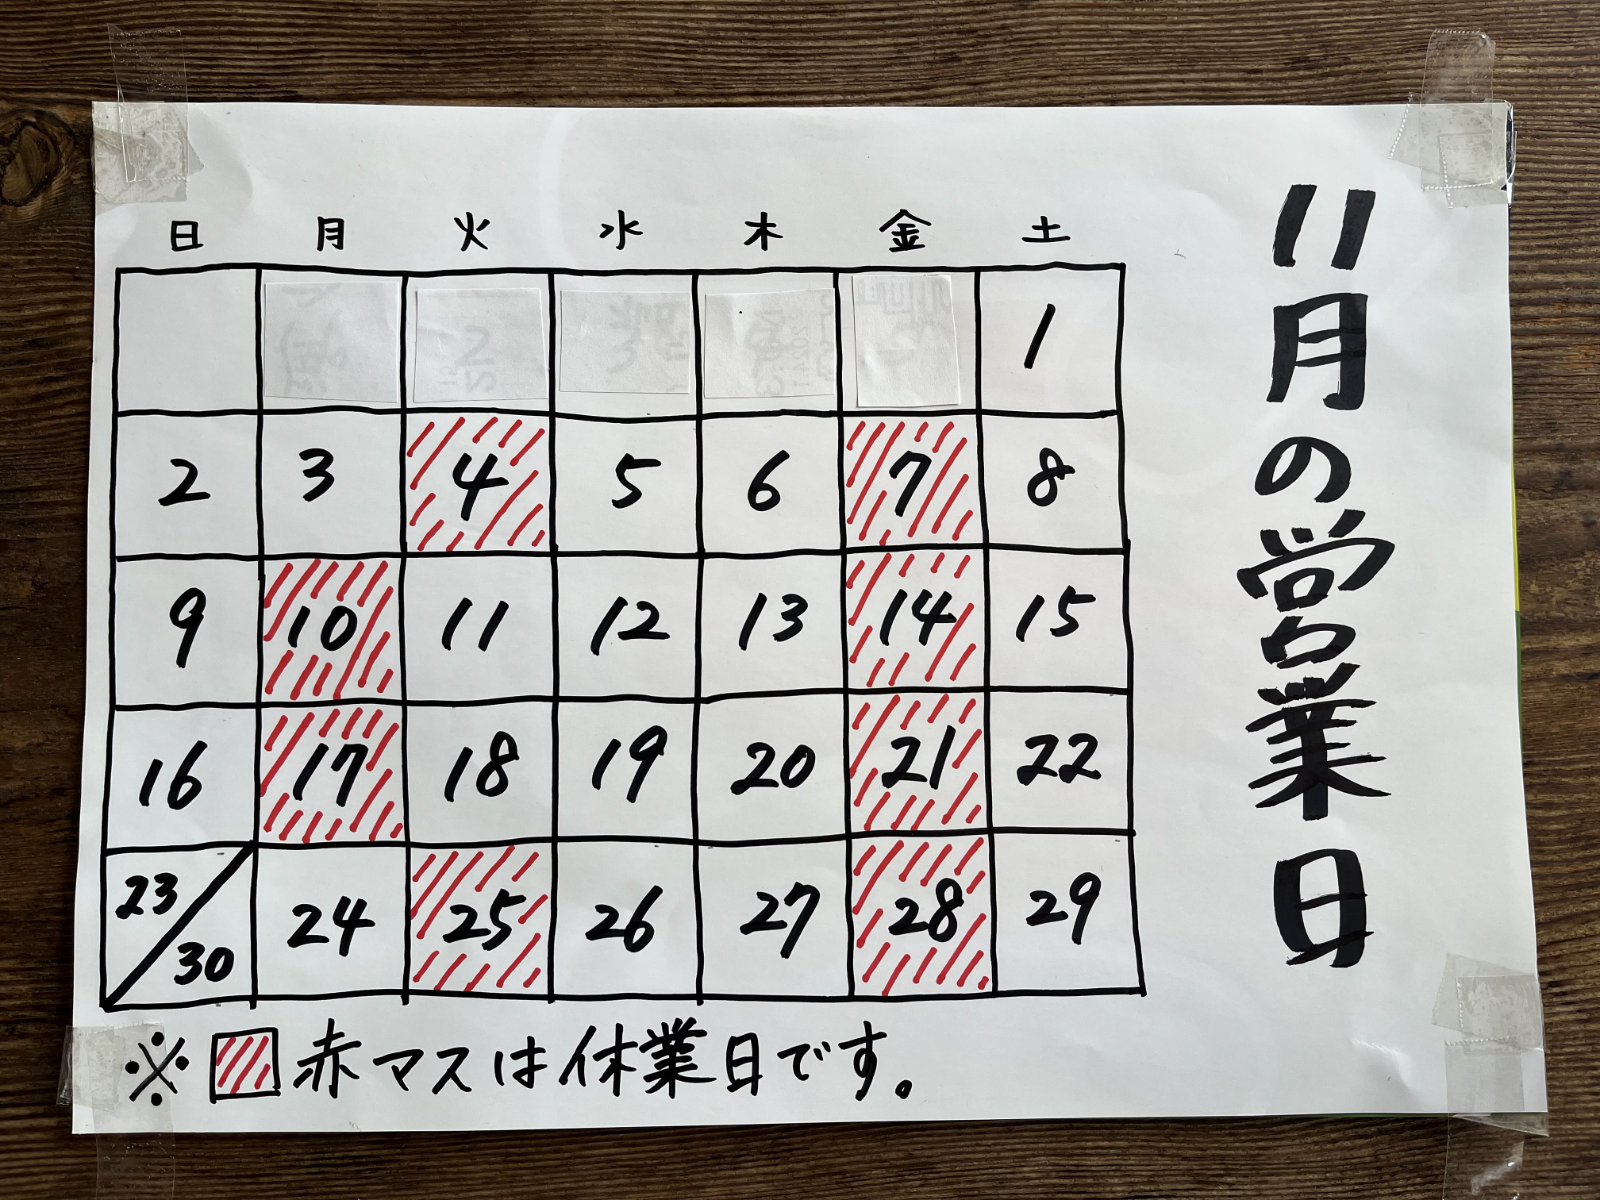 11月の営業日
日 月 火 水 木 金 土
1
2 3 4 5 6 7 8
9 10 11 12 13 14 15
16 17 18 19 20 21 22
23/30 24 25 26 27 28 29
※ 赤マスは休業日です。